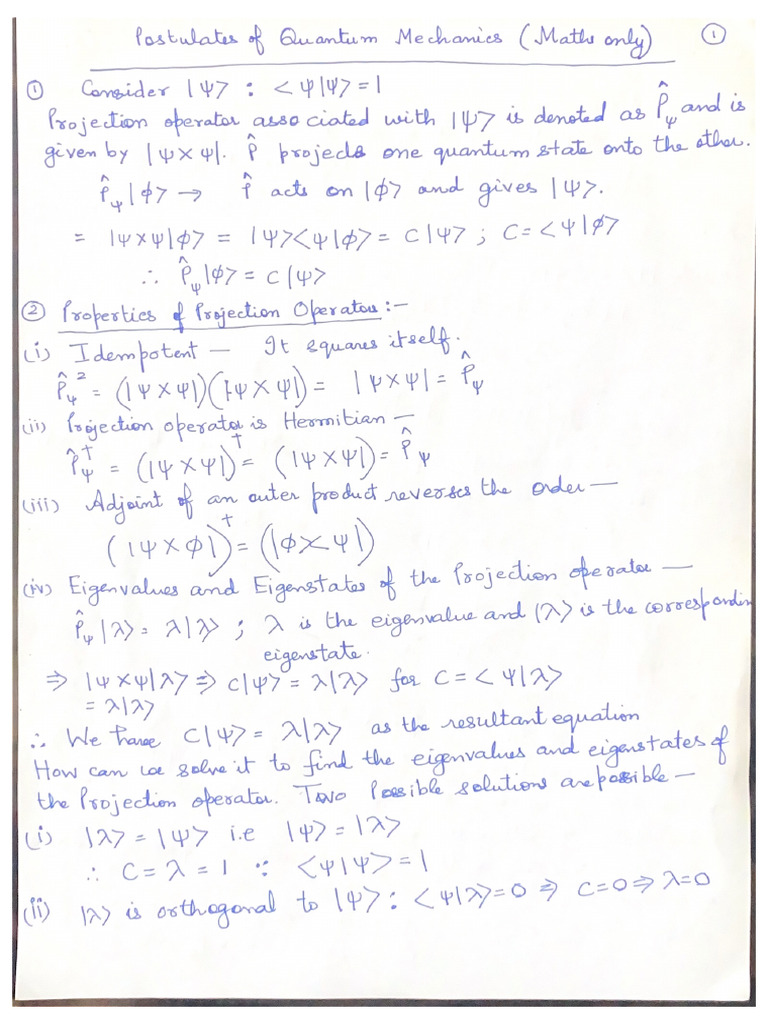 Postulates of Quantum Mechanics (Maths only) ①
① Consider |ψ> : <ψ|ψ> = 1
Projection operator associated with |ψ> is denoted as P̂_ψ and is
given by |ψ><ψ|. P̂ projects one quantum state onto the other.
P̂_ψ|ϕ> → P̂ acts on |ϕ> and gives |ψ>.
= |ψ><ψ|ϕ> = |ψ><ψ|ϕ> = C|ψ> ; C = <ψ|ϕ>
∴ P̂_ψ|ϕ> = C|ψ>
② Properties of Projection Operator :-
(i) Idempotent — It squares itself.
P̂_ψ² = (|ψ><ψ|)(|ψ><ψ|) = |ψ><ψ| = P̂_ψ
(ii) Projection operator is Hermitian —
P̂_ψ† = (|ψ><ψ|)† = (|ψ><ψ|) = P̂_ψ
(iii) Adjoint of an outer product reverses the order —
(|ψ><ϕ|)† = (|ϕ><ψ|)
(iv) Eigenvalues and Eigenstates of the Projection operator —
P̂_ψ|λ> = λ|λ> ; λ is the eigenvalue and |λ> is the correspondin
eigenstate.
⇒ |ψ><ψ|λ> ⇒ C|ψ> = λ|λ> for C = <ψ|λ>
= λ|λ>
∴ We have C|ψ> = λ|λ> as the resultant equation
How can we solve it to find the eigenvalues and eigenstates of
the Projection operator. Two Possible solutions are possible —
(i) |λ> = |ψ> i.e |ψ> = |λ>
∴ C = λ = 1 ∵ <ψ|ψ> = 1
(ii) |λ> is orthogonal to |ψ> : <ψ|λ> = 0 ⇒ C = 0 ⇒ λ = 0